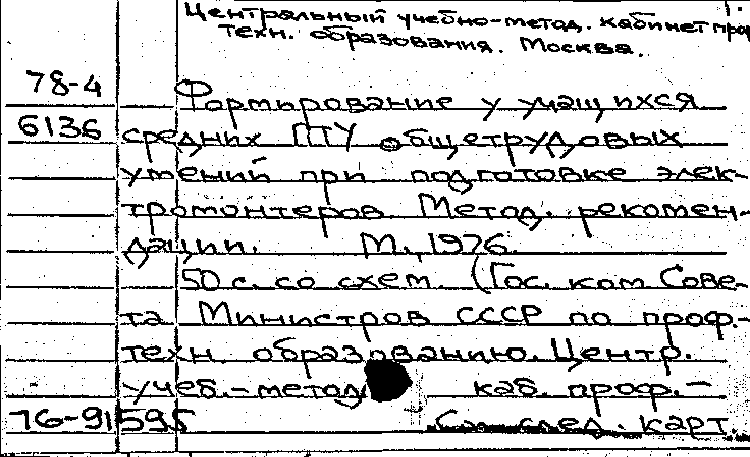 Центральный учебно-метод. кабинет проф
техн. образования. Москва.
78-4 Формирование у учащихся
6136 средних ПТУ общетрудовых
умений при подготовке элек-
тромонтеров. Метод. рекомен-
дации. М., 1976.
50 с. со схем. (Гос. ком Сове-
та Министров СССР по проф.-
техн. образованию. Центр.
учеб.-метод каб. проф.-
76-91595 См след. карт.